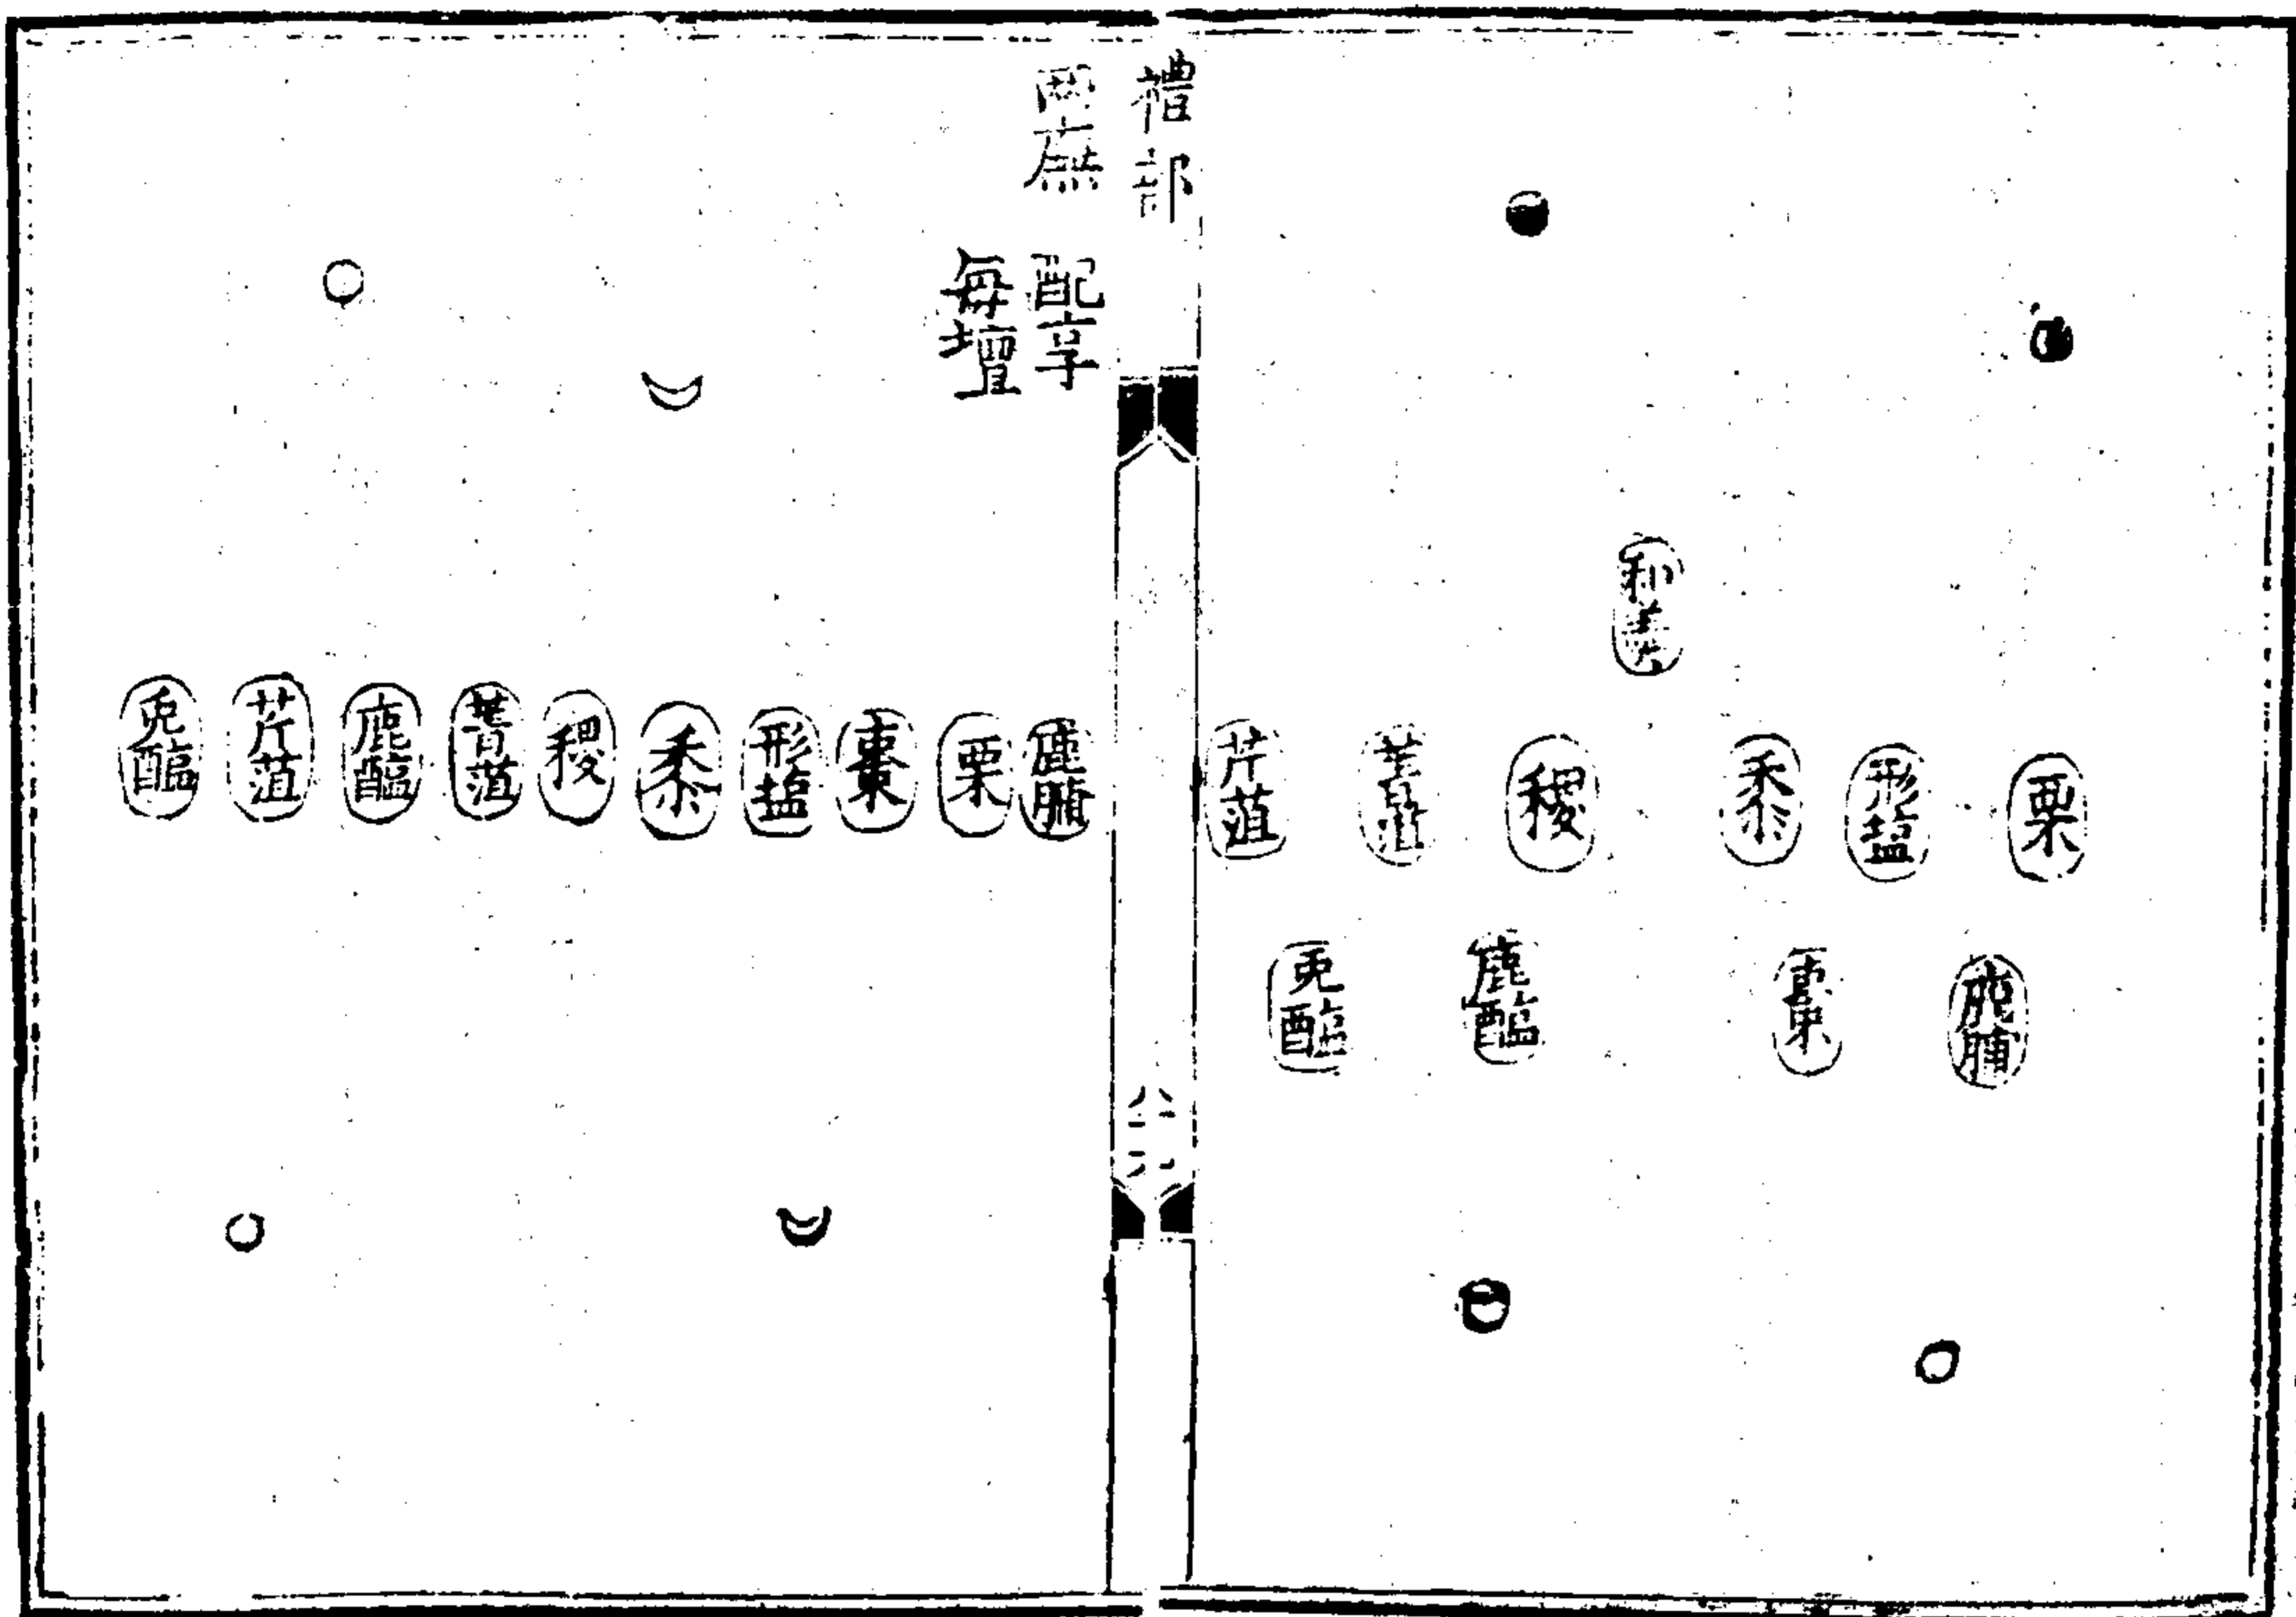 和羹
栗
形塩
黍
稷
菁菹
芹菹
鹿脯
棗
鹿醢
兎醢
禮部
兩廡
配享
每壇
鹿脯
栗
棗
形塩
黍
稷
菁菹
鹿醢
芹菹
兎醢